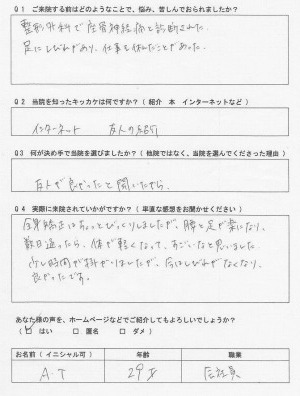 Q1 ご来院する前はどのようなことで、悩み、苦しんでおられましたか？
整形外科で座骨神経痛と診断された。
足にしびれがあり、仕事も休んだことがあった。
Q2 当院を知ったキッカケは何ですか？（ 紹介 本 インターネットなど ）
インターネット 友人の紹介
Q3 何が決め手で当院を選びましたか？（ 他院ではなく、当院を選んでくださった理由 ）
友人が良かったと聞いたから
Q4 実際に来院されていかがですか？（ 率直な感想をお聞かせください ）
全身矯正はちょっとびっくりしましたが、腰と足が楽になり、
数日通ったら、体が軽くなって、すごいなと思いました。
少し時間が掛かりましたが、今はしびれがなくなり、
良かったです。
あなた様の声を、ホームページなどでご紹介してもよろしいでしょうか？
□ はい □ 匿名 □ ダメ
お名前（ イニシャル可 ） 年齢 職業
A.T 29才 会社員